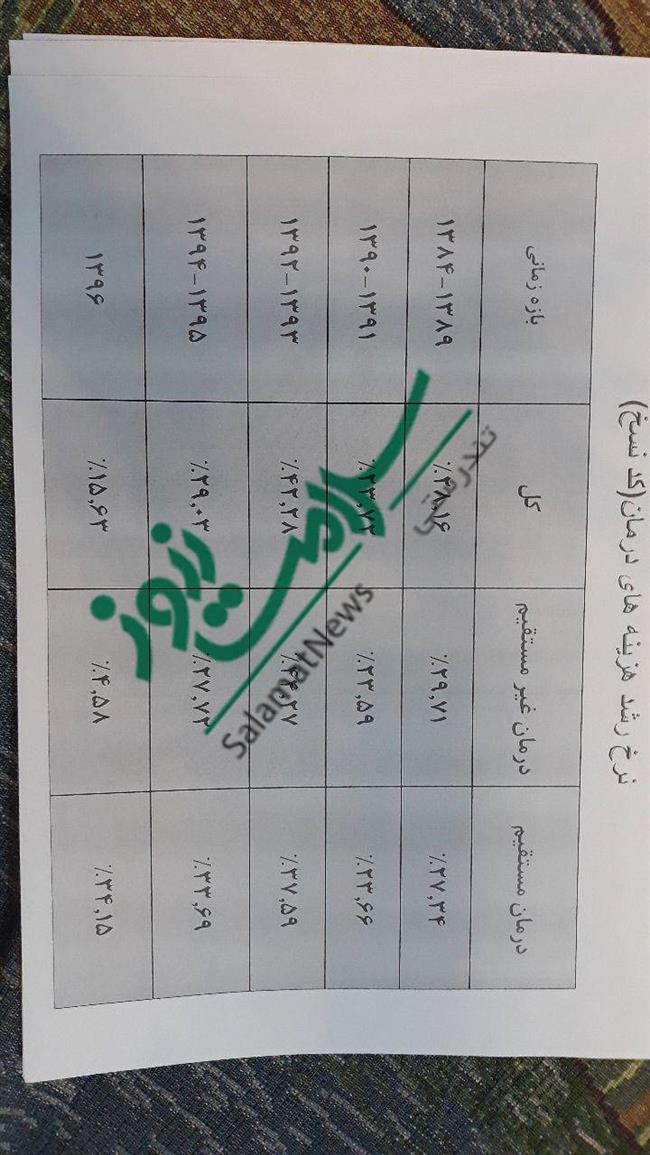 نرخ رشد هزینه های درمان(کد نسخ)
بازه زمانی کل درمان غیر مستقیم درمان مستقیم
۱۳۸۴-۱۳۸۹ ٪۲۸,۱۶ ٪۲۹,۷۱ ٪۲۷,۳۴
۱۳۹۰-۱۳۹۱ ٪۲۳,۷۲ ٪۲۳,۵۹ ٪۲۳,۶۶
۱۳۹۲-۱۳۹۳ ٪۴۲,۲۸ ٪۳۷,۵۹
۱۳۹۴-۱۳۹۵ ٪۲۹,۰۳ ٪۲۷,۷۲ ٪۳۳,۶۹
۱۳۹۶ ٪۱۵,۶۳ ٪۴,۵۸ ٪۳۴,۱۵
تندرستی
سلامت نیوز
SalamatNews